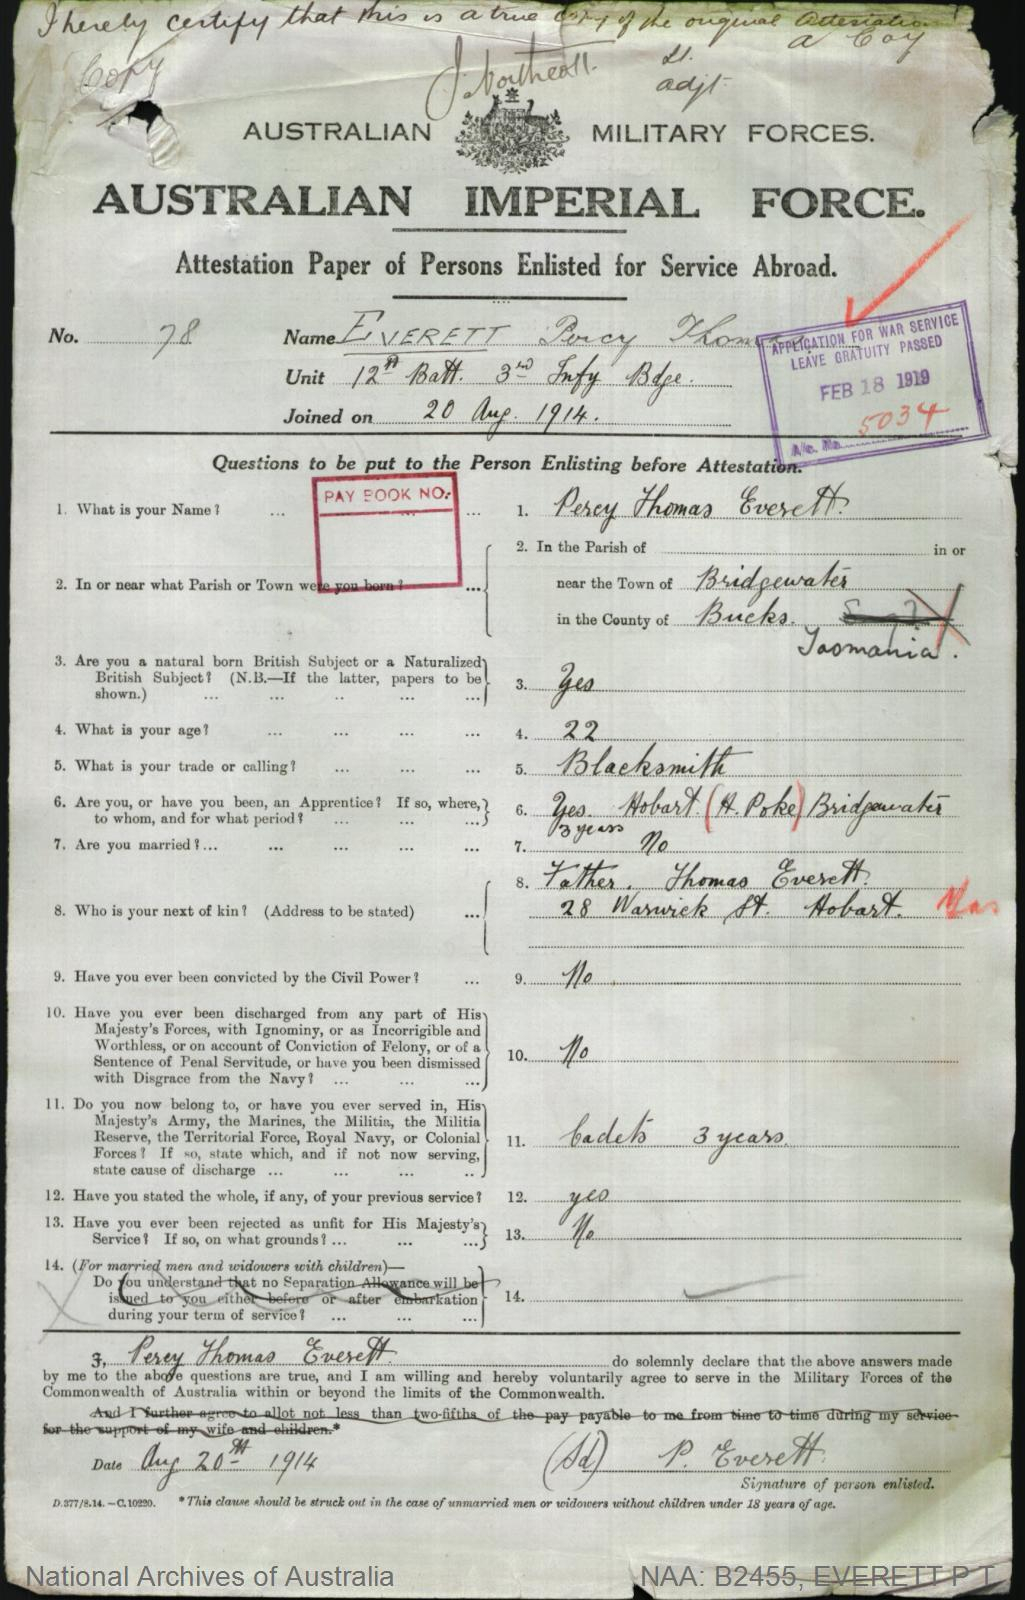 I hereby certify that this is a true Copy of the original Attestation
a Coy
Copy
J. Northcott. Lt.
adjt.
AUSTRALIAN MILITARY FORCES.
AUSTRALIAN IMPERIAL FORCE.
Attestation Paper of Persons Enlisted for Service Abroad.
No. 78 Name EVERETT Percy Thomas
Unit 12th Batt. 3rd Infy Bdge.
Joined on 20 Aug. 1914.
APPLICATION FOR WAR SERVICE
LEAVE GRATUITY PASSED
FEB 18 1919
5034
A/c. No.
Questions to be put to the Person Enlisting before Attestation.
PAY BOOK NO:-
1. What is your Name? ... ... ... 1. Percy Thomas Everett.
2. In or near what Parish or Town were you born? ... 2. In the Parish of in or
near the Town of Bridgewater
in the County of Bucks.
Tasmania.
3. Are you a natural born British Subject or a Naturalized
British Subject? (N.B.—If the latter, papers to be
shown.) ... ... .. ... ... 3. Yes
4. What is your age? ... ... ... 4. 22
5. What is your trade or calling? ... ... ... 5. Blacksmith
6. Are you, or have you been, an Apprentice? If so, where,
to whom, and for what period? ... ... ... 6. Yes. Hobart (H. Poke) Bridgewater
3 years
7. Are you married?... ... ... ... 7. No
8. Who is your next of kin? (Address to be stated) ... 8. Father. Thomas Everett.
28 Warwick St. Hobart.
9. Have you ever been convicted by the Civil Power? ... 9. No
10. Have you ever been discharged from any part of His
Majesty's Forces, with Ignominy, or as Incorrigible and
Worthless, or on account of Conviction of Felony, or of a
Sentence of Penal Servitude, or have you been dismissed
with Disgrace from the Navy? ... ... ... 10. No
11. Do you now belong to, or have you ever served in, His
Majesty's Army, the Marines, the Militia, the Militia
Reserve, the Territorial Force, Royal Navy, or Colonial
Forces? If so, state which, and if not now serving,
state cause of discharge ... ... .. 11. Cadets 3 years.
12. Have you stated the whole, if any, of your previous service? 12. yes
13. Have you ever been rejected as unfit for His Majesty's
Service? If so, on what grounds? ... ... ... 13. No
14. (For married men and widowers with children)—
Do you understand that no Separation Allowance will be
issued to you either before or after embarkation
during your term of service? ... ... ... 14.
I, Percy Thomas Everett. do solemnly declare that the above answers made
by me to the above questions are true, and I am willing and hereby voluntarily agree to serve in the Military Forces of the
Commonwealth of Australia within or beyond the limits of the Commonwealth.
And I further agree to allot not less than two-fifths of the pay payable to me from time to time during my service
for the support of my wife and children.*
Date Aug 20th 1914 (Sd) P. Everett.
Signature of person enlisted.
D.377/8.14.—C.10220. *This clause should be struck out in the case of unmarried men or widowers without children under 18 years of age.
National Archives of Australia NAA: B2455, EVERETT P T